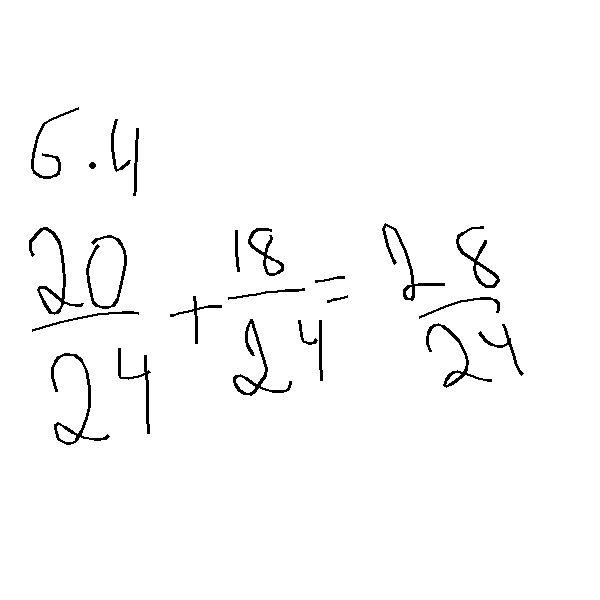 6.4
20/24 + 18/24 = 28/24